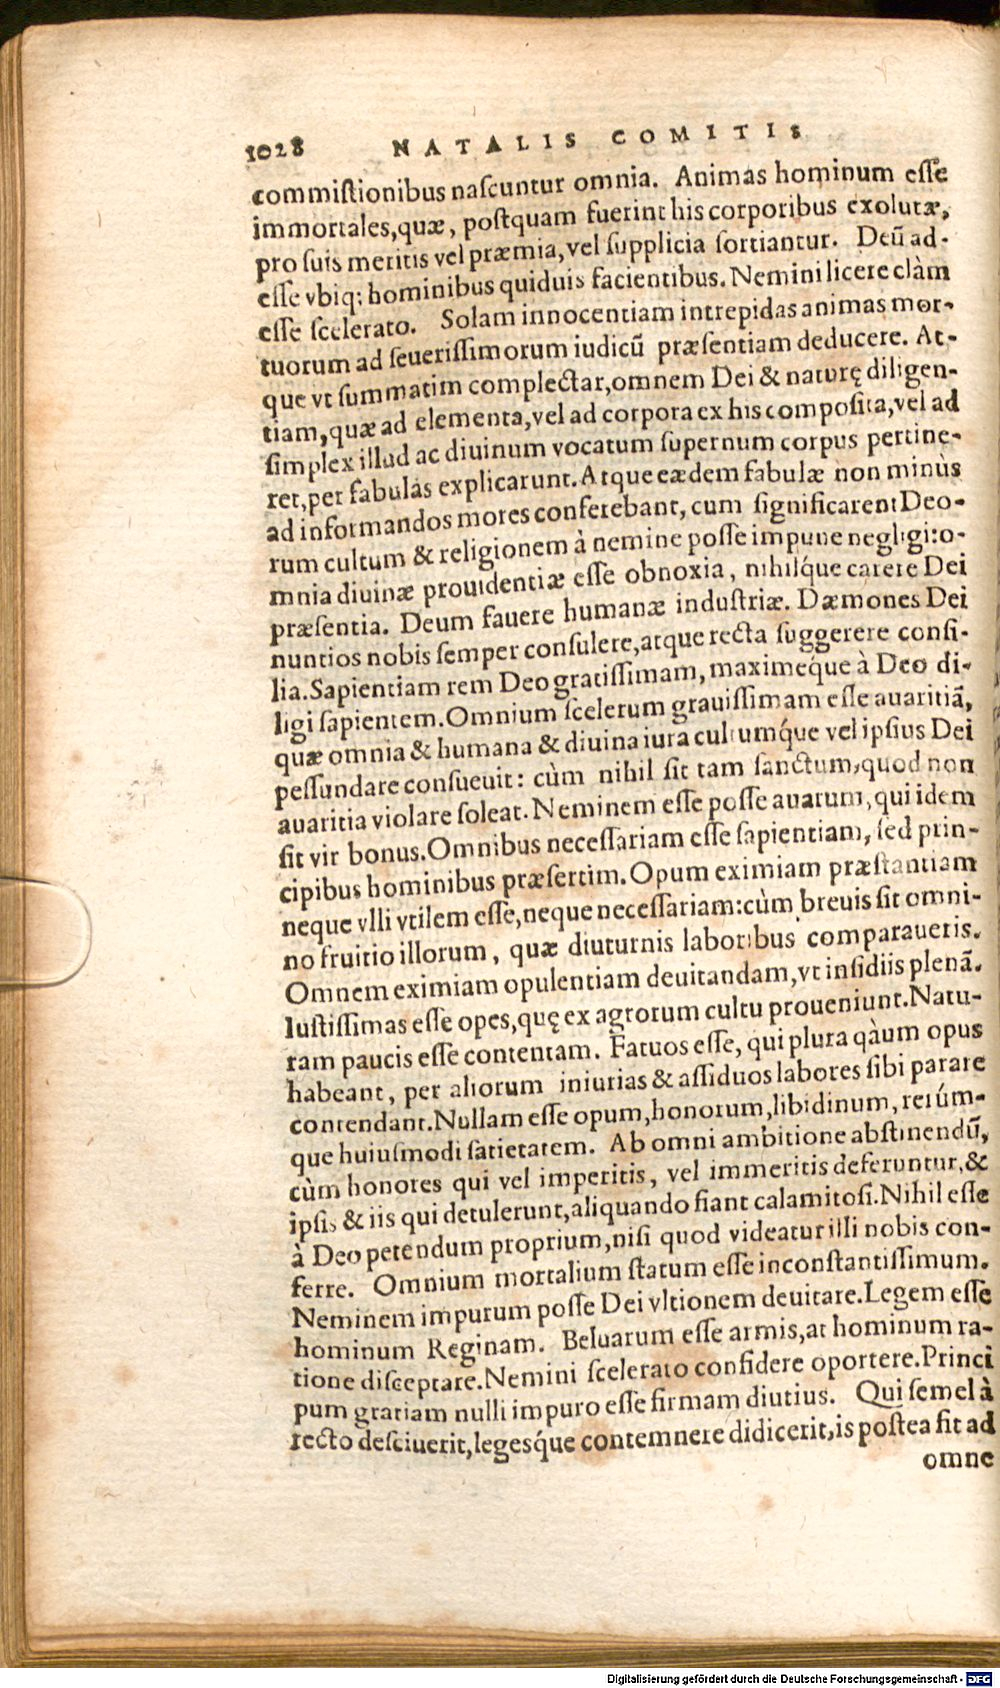 1028 NATALIS COMITIS
commistionibus nascuntur omnia. Animas hominum esse
immortales,quæ, postquam fuerint his corporibus exolutæ,
pro suis meritis vel præmia,vel supplicia sortiantur. Deũ ad-
esse vbiq; hominibus quiduis facientibus. Nemini licere clàm
esse scelerato. Solam innocentiam intrepidas animas mor-
tuorum ad seuerissimorum iudicũ præsentiam deducere. At-
que vt summatim complectar,omnem Dei & naturę diligen-
tiam,quæ ad elementa,vel ad corpora ex his composita,vel ad
simplex illud ac diuinum vocatum supernum corpus pertine-
ret,per fabulas explicarunt. Atque eædem fabulæ non minùs
ad informandos mores conferebant, cum significarent Deo-
rum cultum & religionem à nemine posse impune negligi:o-
mnia diuinæ prouidentiæ esse obnoxia, nihilq́ue carere Dei
præsentia. Deum fauere humanæ industriæ. Dæmones Dei
nuntios nobis semper consulere,atque recta suggerere consi-
lia. Sapientiam rem Deo gratissimam, maximeq́ue à Deo di-
ligi sapientem. Omnium scelerum grauissimam esse auaritiã,
quæ omnia & humana & diuina iura cultumq́ue vel ipsius Dei
pessundare consueuit: cùm nihil sit tam sanctum,quod non
auaritia violare soleat. Neminem esse posse auarum,qui idem
sit vir bonus. Omnibus necessariam esse sapientiam, sed prin-
cipibus hominibus præsertim. Opum eximiam præstantiam
neque vlli vtilem esse,neque necessariam:cùm breuis sit omni-
no fruitio illorum, quæ diuturnis laboribus comparaueris.
Omnem eximiam opulentiam deuitandam,vt insidiis plenã.
Iustissimas esse opes,quę ex agrorum cultu proueniunt. Natu-
ram paucis esse contentam. Fatuos esse, qui plura qàum opus
habeant, per aliorum iniurias & assiduos labores sibi parare
contendant. Nullam esse opum,honorum,libidinum, rerúm-
que huiusmodi satietatem. Ab omni ambitione abstinendũ,
cùm honores qui vel imperitis, vel immeritis deferuntur,&
ipsis & iis qui detulerunt,aliquando fiant calamitosi. Nihil esse
à Deo petendum proprium,nisi quod videatur illi nobis con-
ferre. Omnium mortalium statum esse inconstantissimum.
Neminem impurum posse Dei vltionem deuitare. Legem esse
hominum Reginam. Beluarum esse armis,at hominum ra-
tione disceptare. Nemini scelerato confidere oportere. Princi
pum gratiam nulli impuro esse firmam diutius. Qui semel à
recto desciuerit,legesq́ue contemnere didicerit,is postea fit ad
omne
Digitalisierung gefördert durch die Deutsche Forschungsgemeinschaft - DFG